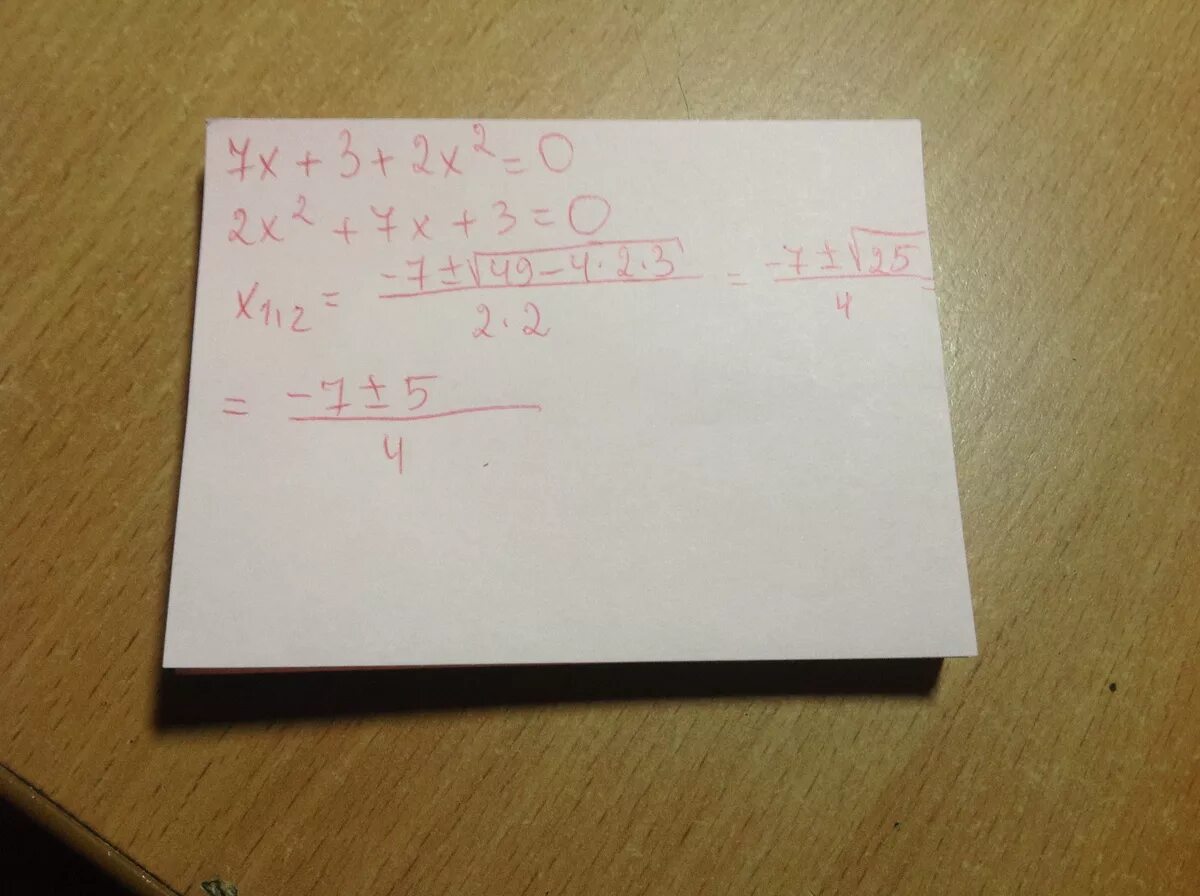 7x + 3 + 2x² = 0
2x² + 7x + 3 = 0
x₁,₂ = (-7 ± √(49 - 4·2·3)) / (2·2) = (-7 ± √25) / 4 =
= (-7 ± 5) / 4